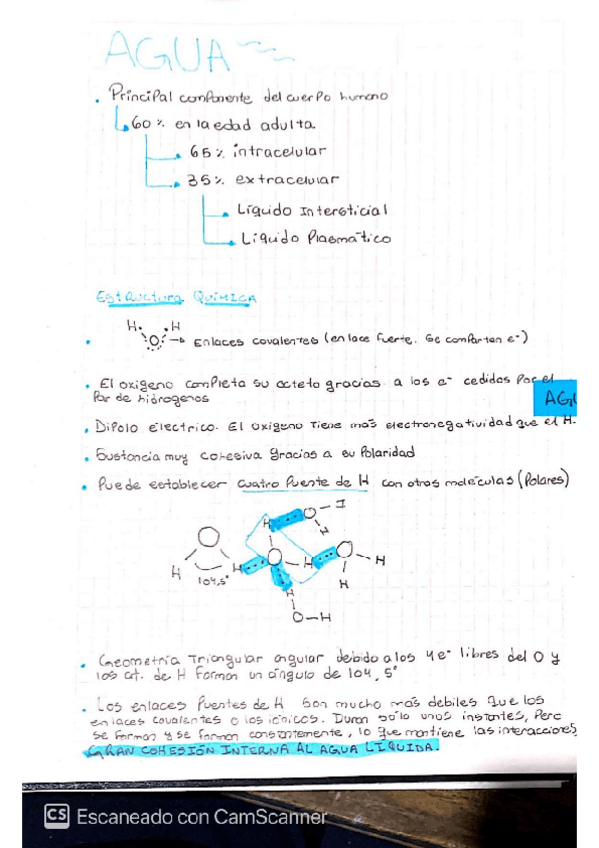 AGUA
• Principal componente del cuerpo humano
60% en la edad adulta.
65% intracelular
35% extracelular
Líquido Intersticial
Líquido Plasmático
Estructura Química
H. .H
O → Enlaces covalentes (enlace fuerte. Se comparten e⁻)
• El oxigeno completa su octeto gracias a los e⁻ cedidos por el
Par de hidrogenos
AGU
• Dipolo electrico. El oxigeno tiene más electronegatividad que el H.
• Sustancia muy cohesiva gracias a su Polaridad
• Puede establecer cuatro Puente de H con otras moléculas (Polares)
O – I
H H
O O
H H O – H – O – H
104,5°
H H
O – H
• Geometría Triangular angular debido a los 4 e⁻ libres del O y
los at. de H forman un ángulo de 104,5°
• Los enlaces Puentes de H son mucho más debiles que los
enlaces covalentes o los iónicos. Duran solo unos instantes, Pero
se forman y se forman constantemente, lo que mantiene las interacciones,
GRAN COHESIÓN INTERNA AL AGUA LÍQUIDA.
CS Escaneado con CamScanner